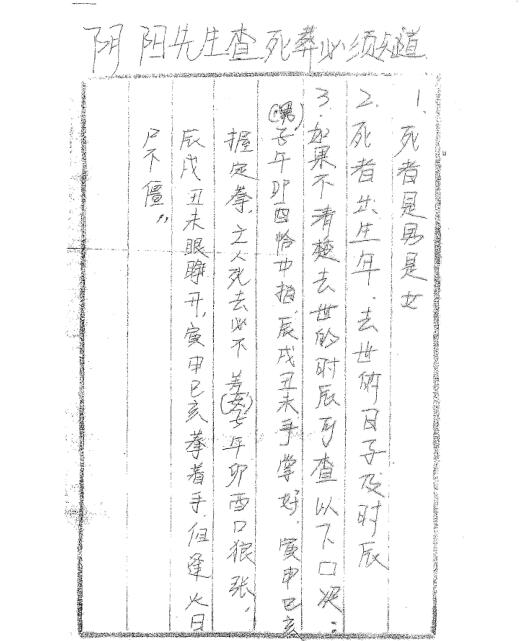 阴阳先生查死葬必须知道
1. 死者是男是女
2. 死者出生年.去世的日子及时辰
3. 如果不清楚去世的时辰可查以下口决:
(男)子午卯酉恰中指.辰戌丑未手掌好.寅申巳亥
握定拳.亡人死去必不差(女)子午卯酉口狼张,
辰戌丑未眼睁开,寅申巳亥拳着手.但逢火日
尸不僵"